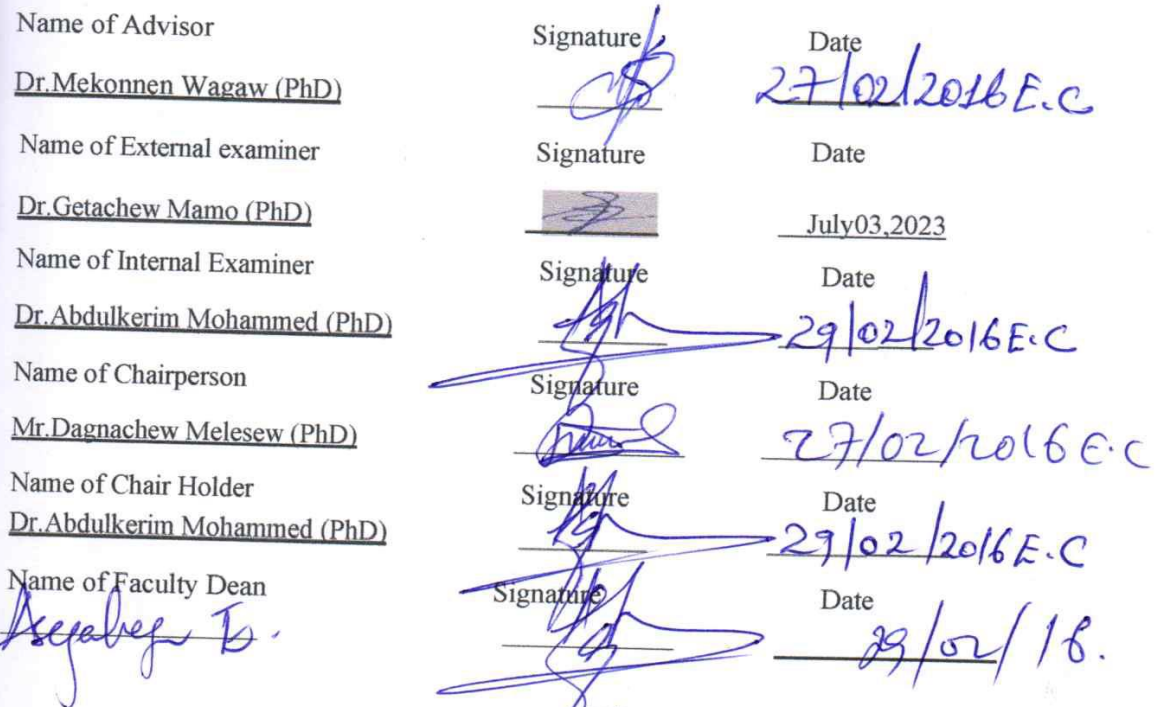 Name of Advisor Signature Date
Dr.Mekonnen Wagaw (PhD) 27/02/2016 E.C
Name of External examiner Signature Date
Dr.Getachew Mamo (PhD) July03,2023
Name of Internal Examiner Signature Date
Dr.Abdulkerim Mohammed (PhD) 29/02/2016 E.C
Name of Chairperson Signature Date
Mr.Dagnachew Melesew (PhD) 27/02/2016 E.C
Name of Chair Holder Signature Date
Dr.Abdulkerim Mohammed (PhD) 29/02/2016 E.C
Name of Faculty Dean Signature Date
29/02/16.